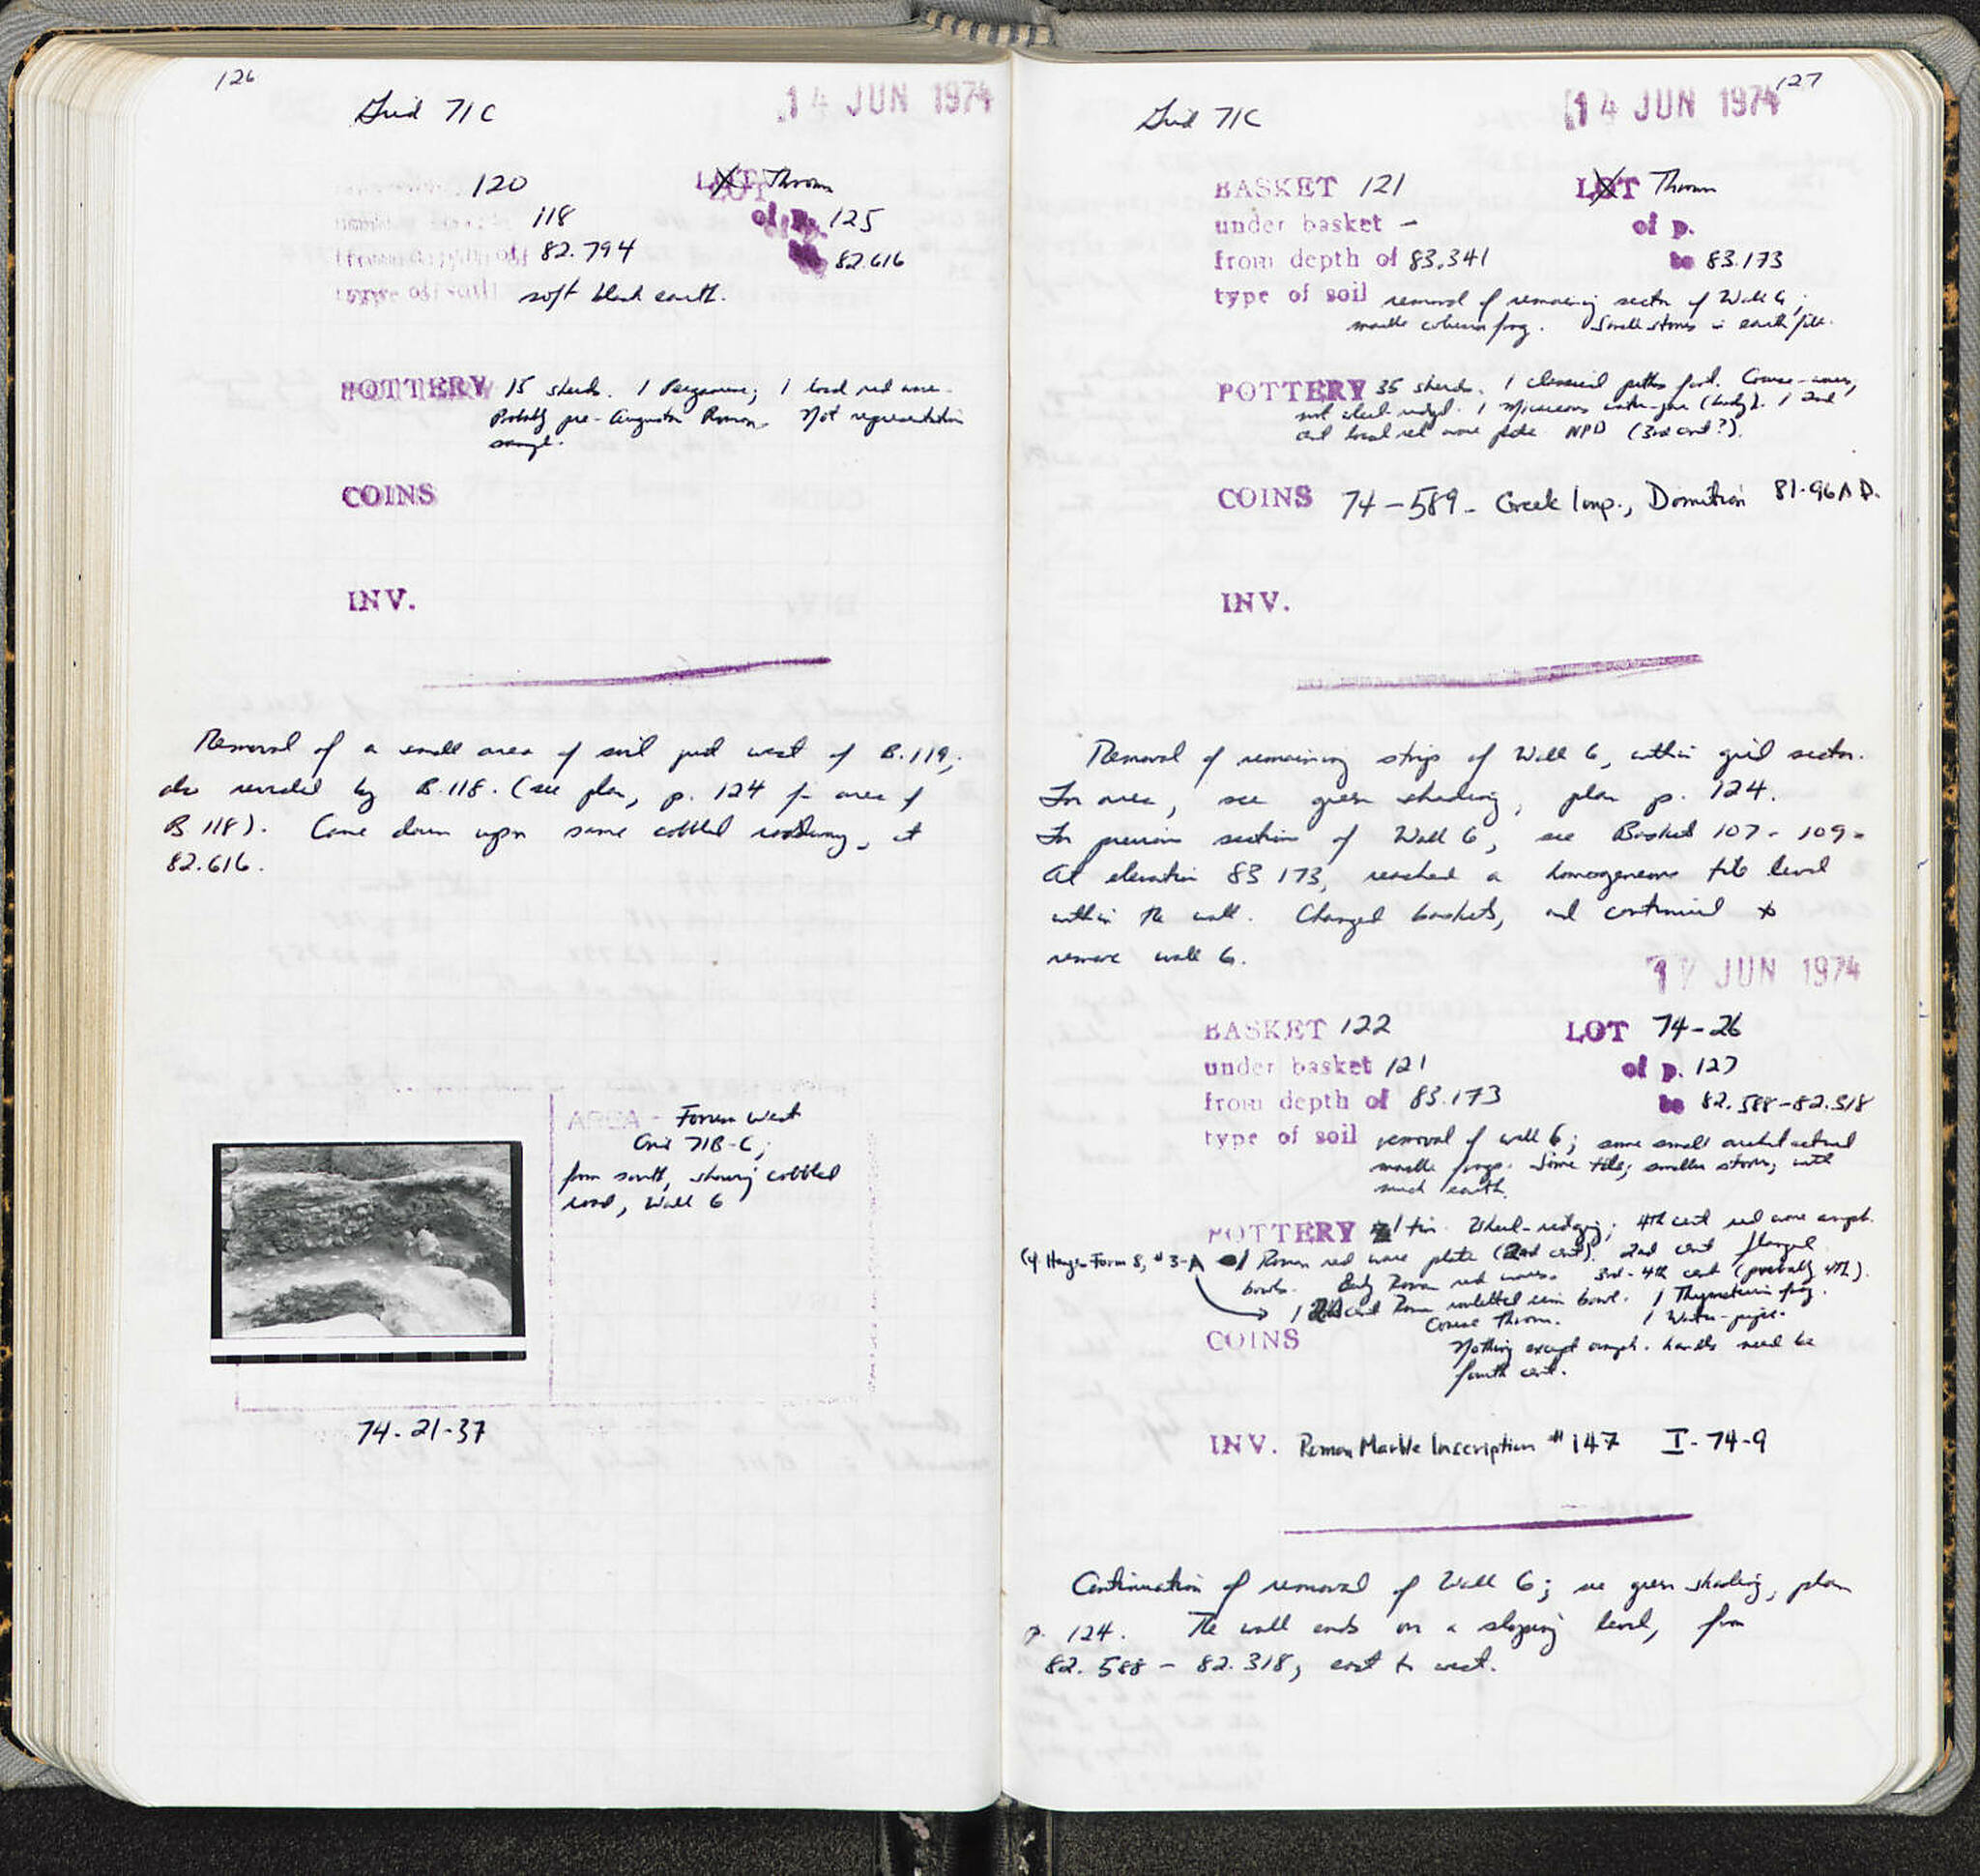 126
Grid 71C
14 JUN 1974
120
LOT Thrown
118
of p. 125
from depth of 82.794
82.616
type of soil soft black earth.
POTTERY 15 sherds. 1 Pergamene; 1 local red ware.
Probably pre-Augustan Roman. Not representative
sample.
COINS
INV.
Removal of a small area of soil just west of B.119,
also revealed by B.118. (see plan, p. 124 for area of
B 118). Came down upon same cobbled roadway, at
82.616.
AREA - Forum West
Grid 71B-C;
from south, showing cobbled
road, Wall 6
74-21-37
127
Grid 71C
14 JUN 1974
BASKET 121
LOT Thrown
under basket -
of p.
from depth of 83.341
to 83.173
type of soil removal of remaining sector of Wall 6;
marble column frag. Small stones in earth fill.
POTTERY 35 sherds. 1 classical foot. Coarse-wares,
not wheel ridged. 1 Micaceous water-jar (body). 1 2nd
cent local red ware plate NPD (3rd cent?).
COINS 74-589- Greek Imp., Domitian 81-96 A.D.
INV.
Removal of remaining strip of Wall 6, within grid sector.
For area, see green shading, plan p. 124.
For previous section of Wall 6, see Basket 107-109-
At elevation 83.173, reached a homogeneous tile level
within the wall. Changed baskets, and continued to
remove wall 6.
17 JUN 1974
BASKET 122
LOT 74-26
under basket 121
of p. 127
from depth of 83.173
to 82.588-82.318
type of soil removal of wall 6; some small architectural
marble frags. Some tile; smaller stones, with
much earth.
POTTERY 1 tin. Wheel-ridging; 4th cent red ware amph.
(cf Hayes Form 8, #3-A
1 Roman red ware plate (2nd cent). 2nd cent flanged
bowls. Early Roman red wares. 3rd-4th cent (probably 4th).
1 2nd cent Roman rouletted rim bowl. 1 Thymiaterion frag.
Coarse Thrown. 1 Water-pipe.
COINS
Nothing except amph. handles need be
fourth cent.
INV. Roman Marble Inscription #147 I-74-9
Continuation of removal of Wall 6; see green shading, plan
p. 124. The wall ends on a sloping level, from
82.588 - 82.318, east to west.